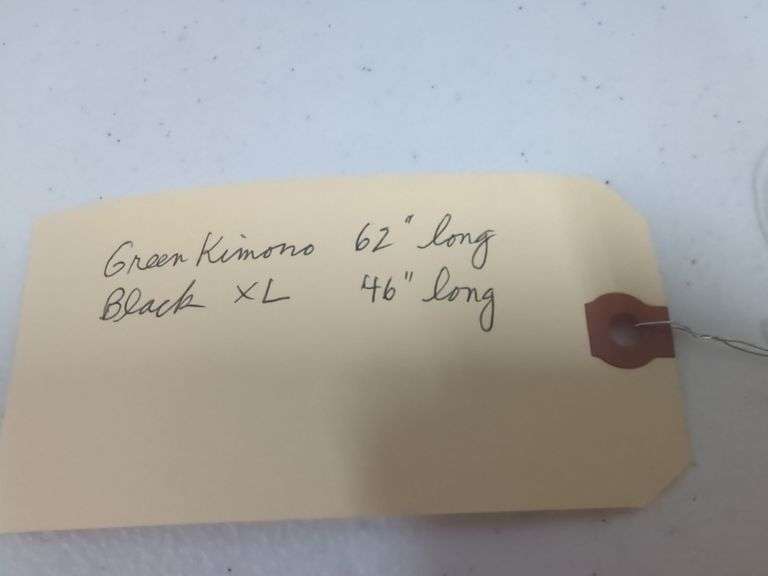 Green Kimono 62" long
Black XL 46" long